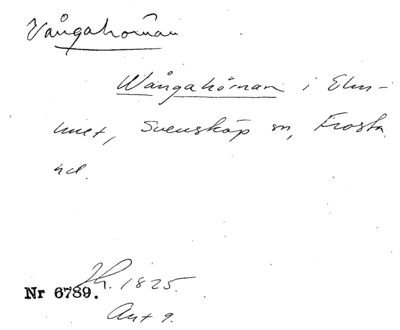 Vångahörnan
Wångahörnan i Elm-
met, Svensköp sn, Frosta
hd.
Nr 6789. Th. 1825.
Ant 9.